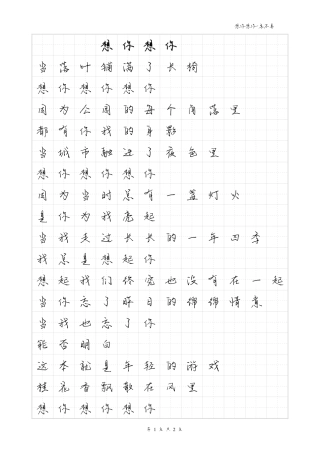 想你想你
想你想你
当落叶铺满了长椅
想你想你想你
因为公园的每个角落里
都有你我的身影
当城市融进了夜色里
想你想你想你
因为当时总有一盏灯火
是你为我亮起
当我走过长长的一年四季
我总是想起你
想起我们你宽也没有在一起
当你忘了昨日的绵绵情意
当我也忘了你
能否明白
这本就是年轻的游戏
桂花香飘散在风里
想你想你想你
第 1 页 共 2 页